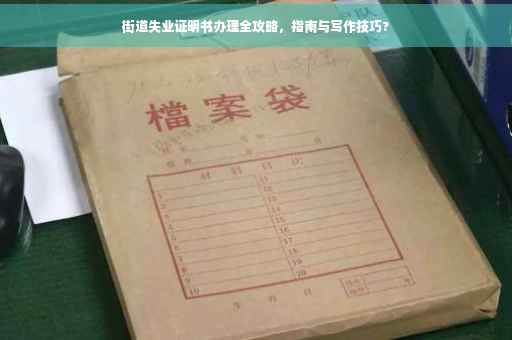 街道失业证明书办理全攻略，指南与写作技巧？
檔案袋
材料目次
1 11
2 12
3 13
4 14
5 15
6 16
7 17
8 18
9 19
10 20
年 月 日